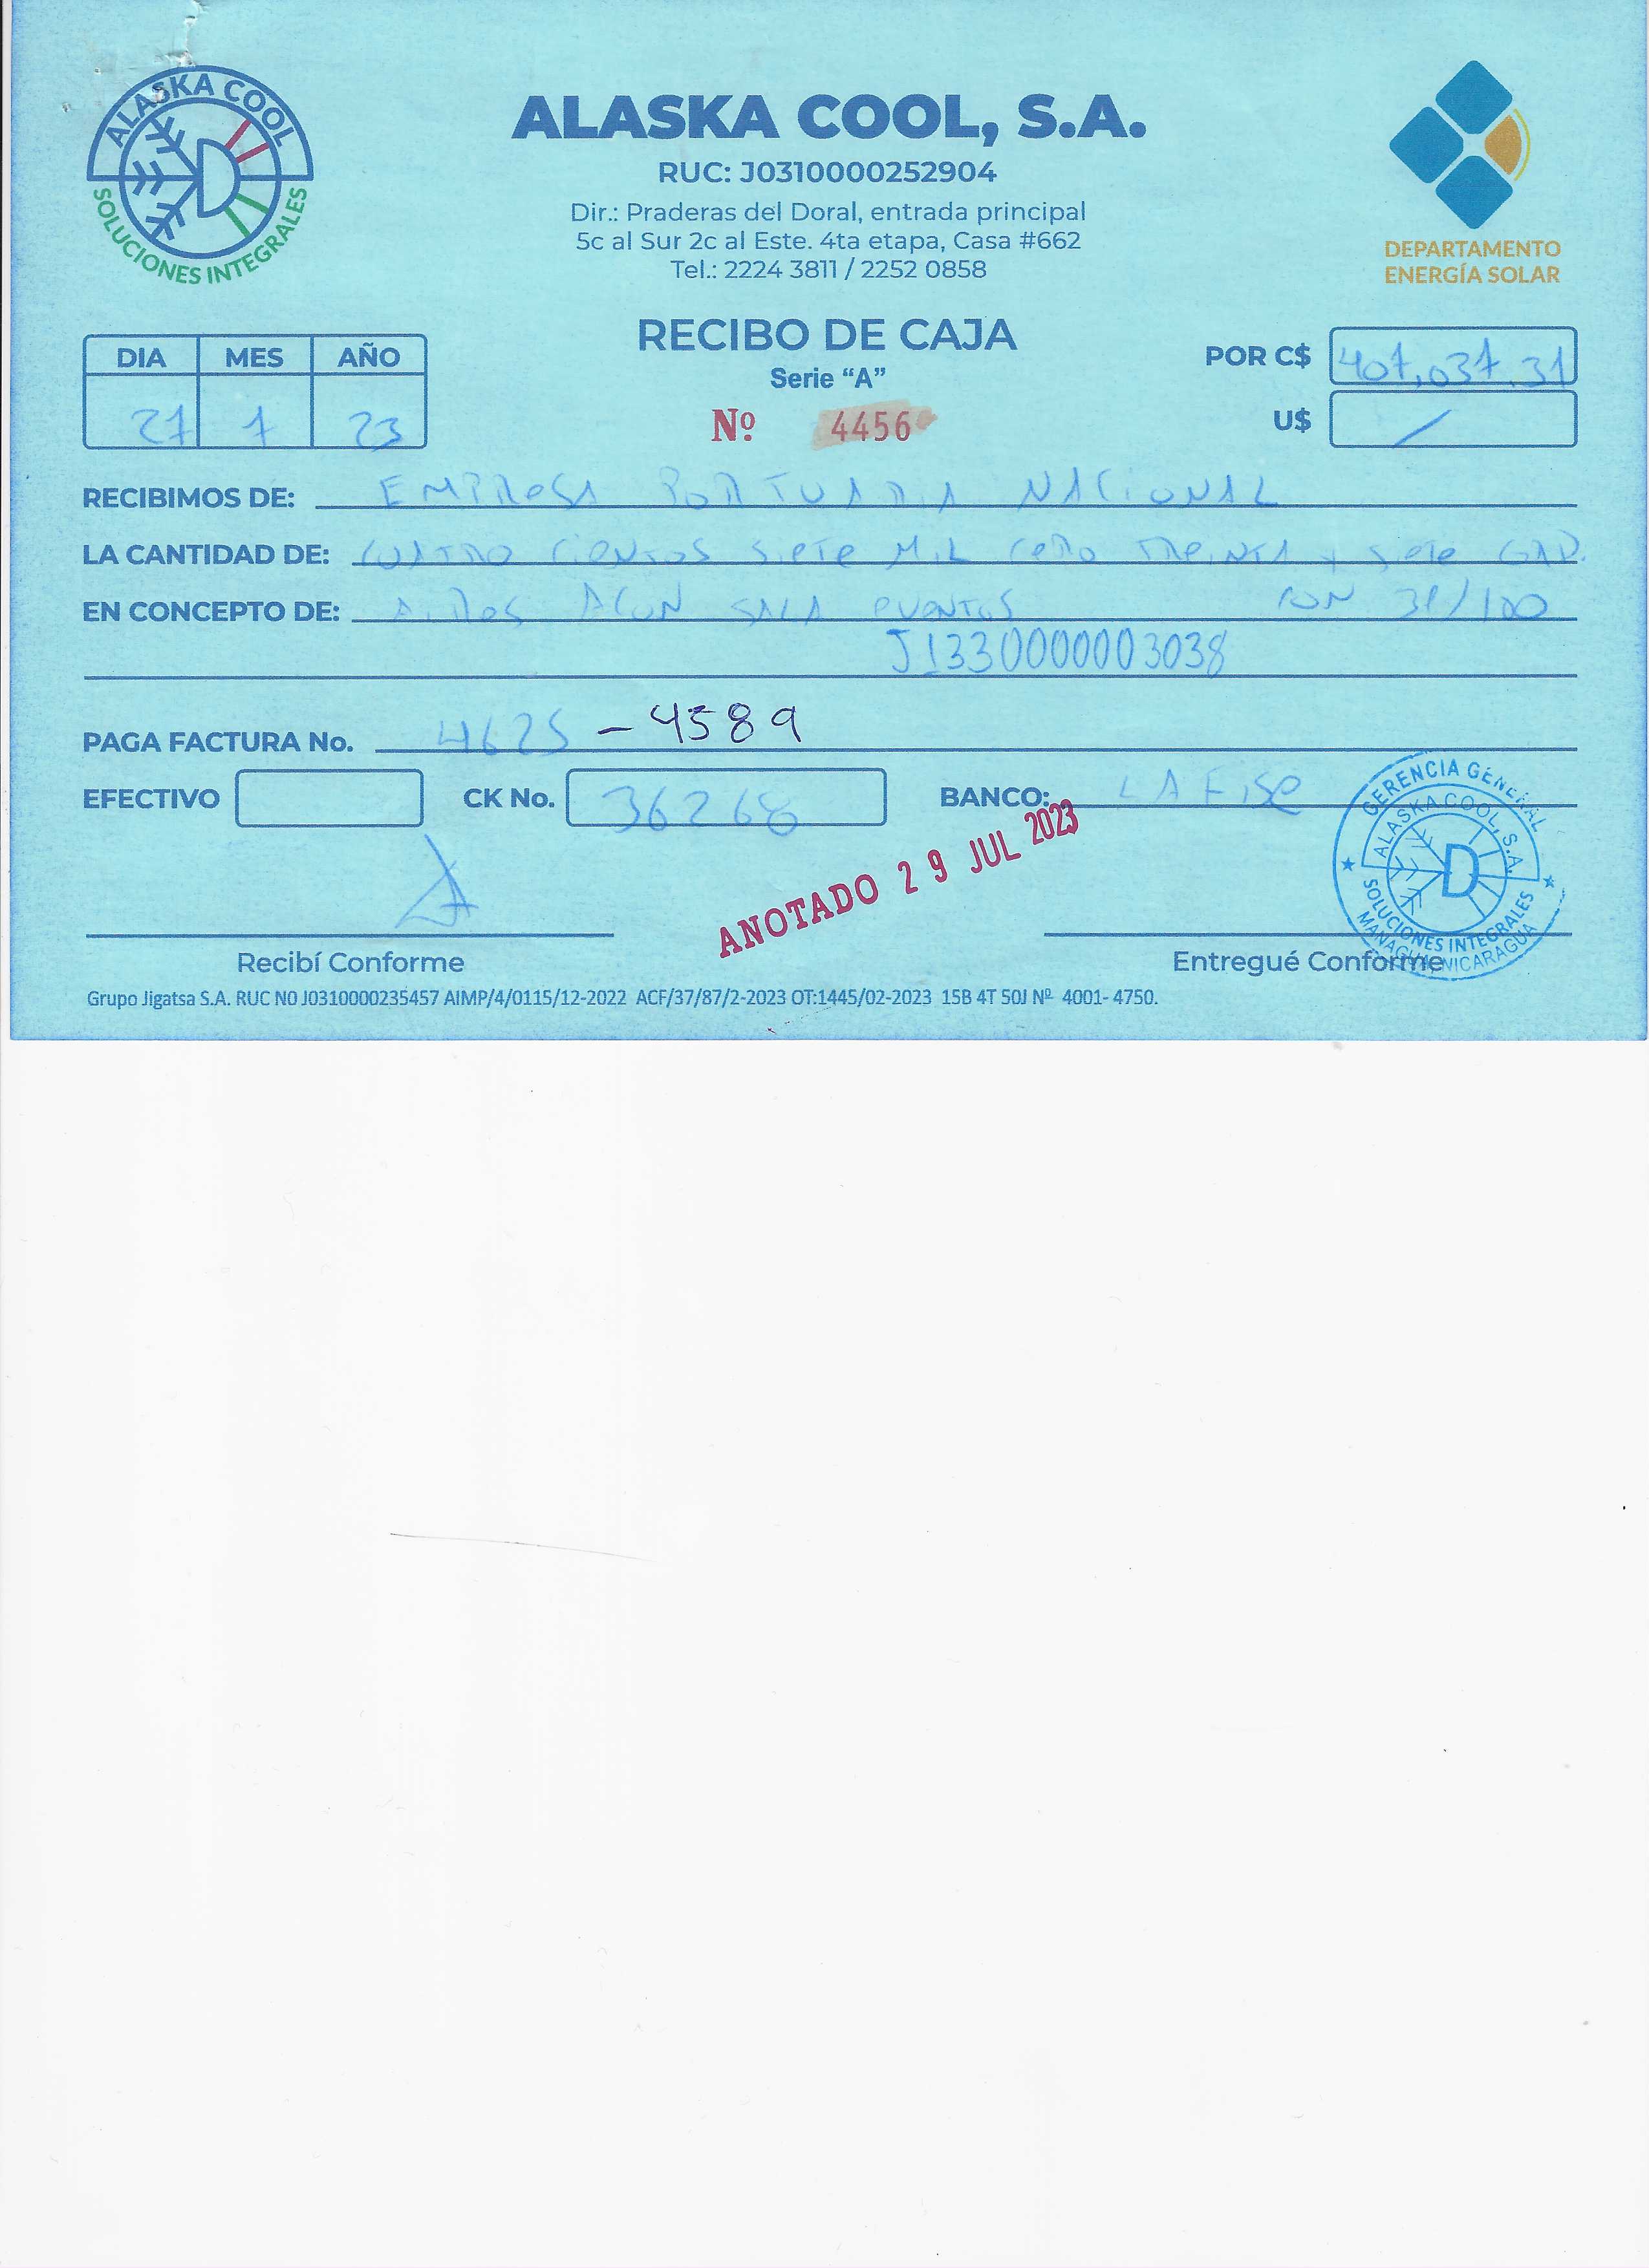 ALASKA COOL
SOLUCIONES INTEGRALES
ALASKA COOL, S.A.
RUC: J0310000252904
Dir.: Praderas del Doral, entrada principal
5c al Sur 2c al Este. 4ta etapa, Casa #662
Tel.: 2224 3811 / 2252 0858
DEPARTAMENTO
ENERGÍA SOLAR
RECIBO DE CAJA
Serie “A”
Nº 4456
DIA MES AÑO
27 7 23
POR C$ 407,037.31
U$ /
RECIBIMOS DE: EMPRESA PORTUARIA NACIONAL
LA CANTIDAD DE: CUATRO CIENTOS SIETE MIL CERO TREINTA Y SIETE
EN CONCEPTO DE: AIRES ACON SALA EVENTOS CON 31/100
J1330000003038
PAGA FACTURA No. 4625 - 4589
EFECTIVO CK No. 36268 BANCO: LAFISE
ANOTADO 29 JUL 2023
GERENCIA GENERAL
ALASKA COOL, S.A.
D
SOLUCIONES INTEGRALES
MANAGUA, NICARAGUA
Recibí Conforme Entregué Conforme
Grupo Jigatsa S.A. RUC N0 J0310000235457 AIMP/4/0115/12-2022 ACF/37/87/2-2023 OT:1445/02-2023 15B 4T 50J Nº 4001- 4750.